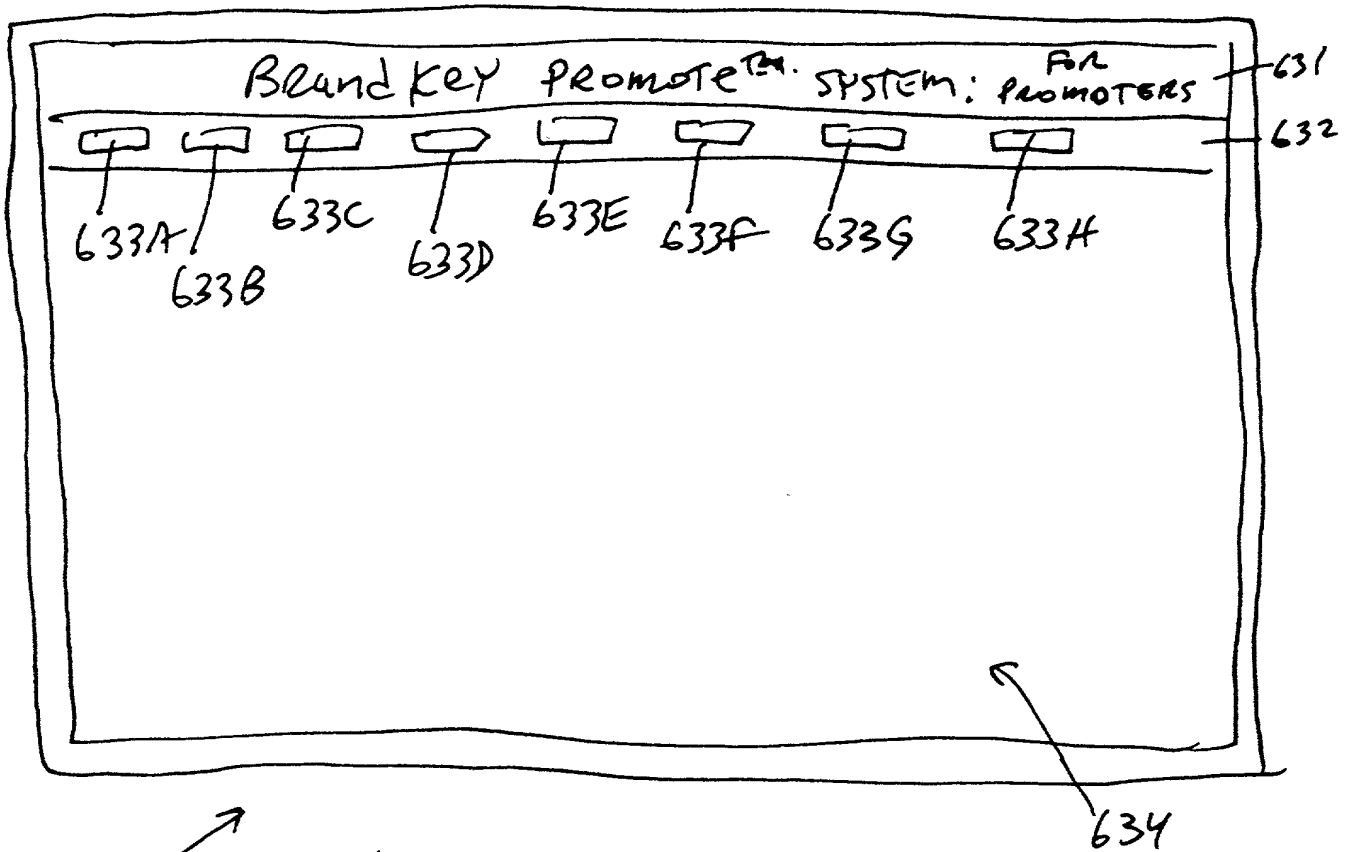 BrandKey PROMOTE TM. SYSTEM: FOR PROMOTERS
631
632
633A
633B
633C
633D
633E
633F
633G
633H
634